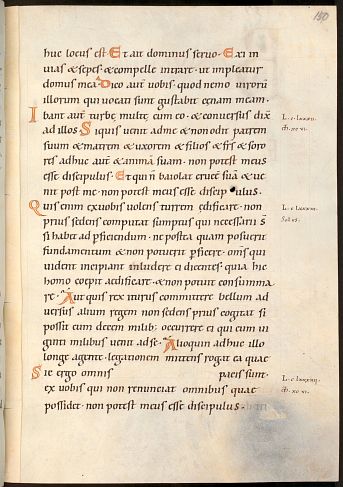 150
huc locus est. Et ait dominus servo. Exi in
vias & sepes. & compelle intrare. ut impleatur
domus mea. Dico aut̄ vobis. quod nemo virorum
illorum qui vocati sunt gustabit cęnam meam.
Ibant aut̄ turbę multę cum eo. & conversus dix̄
ad illos. Siquis venit ad me & non odit patrem
suum & matrem & uxorem & filios & frs̄ & soro
res adhuc aut̄ & animā suam. non potest meus
esse discipulus. Et qui n̄ baiolat crucē suā & ve
nit post me. non potest meus esse discipulus.
Quis enim ex vobis volens turrem ędificare. non
prius sedens computat sumptus qui necessarii s̄
si habet ad pficiendum. ne postea quam posuerit
fundamentum & non potuerit pficere. om̄s qui
vident incipiant inludere ei dicentes. quia hic
homo coepit aedificare. & non potuit consumma
re. Aut quis rex iturus committere bellum ad
versus alium regem non sedens prius cogitat si
possit cum decem milib; occurrere ei qui cum vi
ginti milibus venit ad se. Alioquin adhuc illo
longe agente. legationem mittens rogat ea quae
Sic ergo omnis pacis sunt.
ex vobis qui non renunciat omnibus quae
possidet. non potest meus esse discipulus.